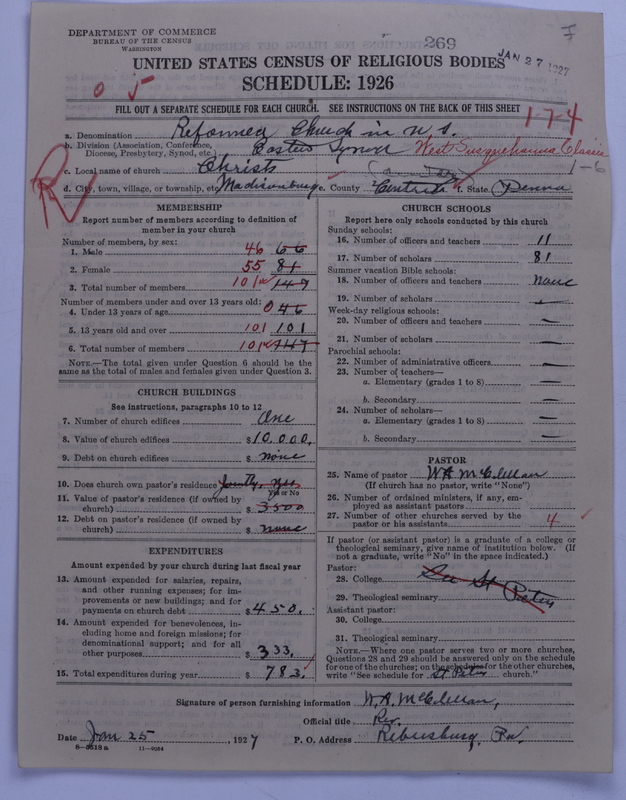 DEPARTMENT OF COMMERCE
BUREAU OF THE CENSUS
WASHINGTON
269
JAN 27 1927
UNITED STATES CENSUS OF RELIGIOUS BODIES
SCHEDULE: 1926
0 5
FILL OUT A SEPARATE SCHEDULE FOR EACH CHURCH. SEE INSTRUCTIONS ON THE BACK OF THIS SHEET
1-7-4
a. Denomination Reformed Church in U.S.
b. Division (Association, Conference, Diocese, Presbytery, Synod, etc.) Eastern Synod West Susquehanna Classis
c. Local name of church Christ's
1-6
d. City, town, village, or township, etc. Madisonburg e. County Centre f. State Penna
R
MEMBERSHIP
Report number of members according to definition of
member in your church
Number of members, by sex:
1. Male 46 66
2. Female 55 81
3. Total number of members 101 147
Number of members under and over 13 years old:
4. Under 13 years of age 0 46
5. 13 years old and over 101 101
6. Total number of members 101 147
NOTE.—The total given under Question 6 should be the
same as the total of males and females given under Question 3.
CHURCH BUILDINGS
See instructions, paragraphs 10 to 12
7. Number of church edifices One
8. Value of church edifices $10,000.
9. Debt on church edifices $ none
10. Does church own pastor's residence Jointly, yes
Yes or No
11. Value of pastor's residence (if owned by
church) $ 3500
12. Debt on pastor's residence (if owned by
church) $ none
EXPENDITURES
Amount expended by your church during last fiscal year
13. Amount expended for salaries, repairs,
and other running expenses; for im-
provements or new buildings; and for
payments on church debt $ 450.
14. Amount expended for benevolences, in-
cluding home and foreign missions; for
denominational support; and for all
other purposes $ 333.
15. Total expenditures during year $ 783.
CHURCH SCHOOLS
Report here only schools conducted by this church
Sunday schools:
16. Number of officers and teachers 11
17. Number of scholars 81
Summer vacation Bible schools:
18. Number of officers and teachers none
19. Number of scholars —
Week-day religious schools:
20. Number of officers and teachers —
21. Number of scholars —
Parochial schools:
22. Number of administrative officers —
23. Number of teachers—
a. Elementary (grades 1 to 8) —
b. Secondary —
24. Number of scholars—
a. Elementary (grades 1 to 8) —
b. Secondary —
PASTOR
25. Name of pastor W A McClellan
(If church has no pastor, write "None")
26. Number of ordained ministers, if any, em-
ployed as assistant pastors
27. Number of other churches served by the
pastor or his assistants 4
If pastor (or assistant pastor) is a graduate of a college or
theological seminary, give name of institution below. (If
not a graduate, write "No" in the space indicated.)
Pastor:
28. College See St Peters
29. Theological seminary
Assistant pastor:
30. College
31. Theological seminary
NOTE.—Where one pastor serves two or more churches,
Questions 28 and 29 should be answered only on the schedule
for one of the churches; on the schedules for the other churches,
write "See schedule for St Peters church."
Signature of person furnishing information W. A. McClellan,
Official title Rev.
Date Jan 25, 1927 P. O. Address Rebersburg, Pa.
6—8518a 11—9054